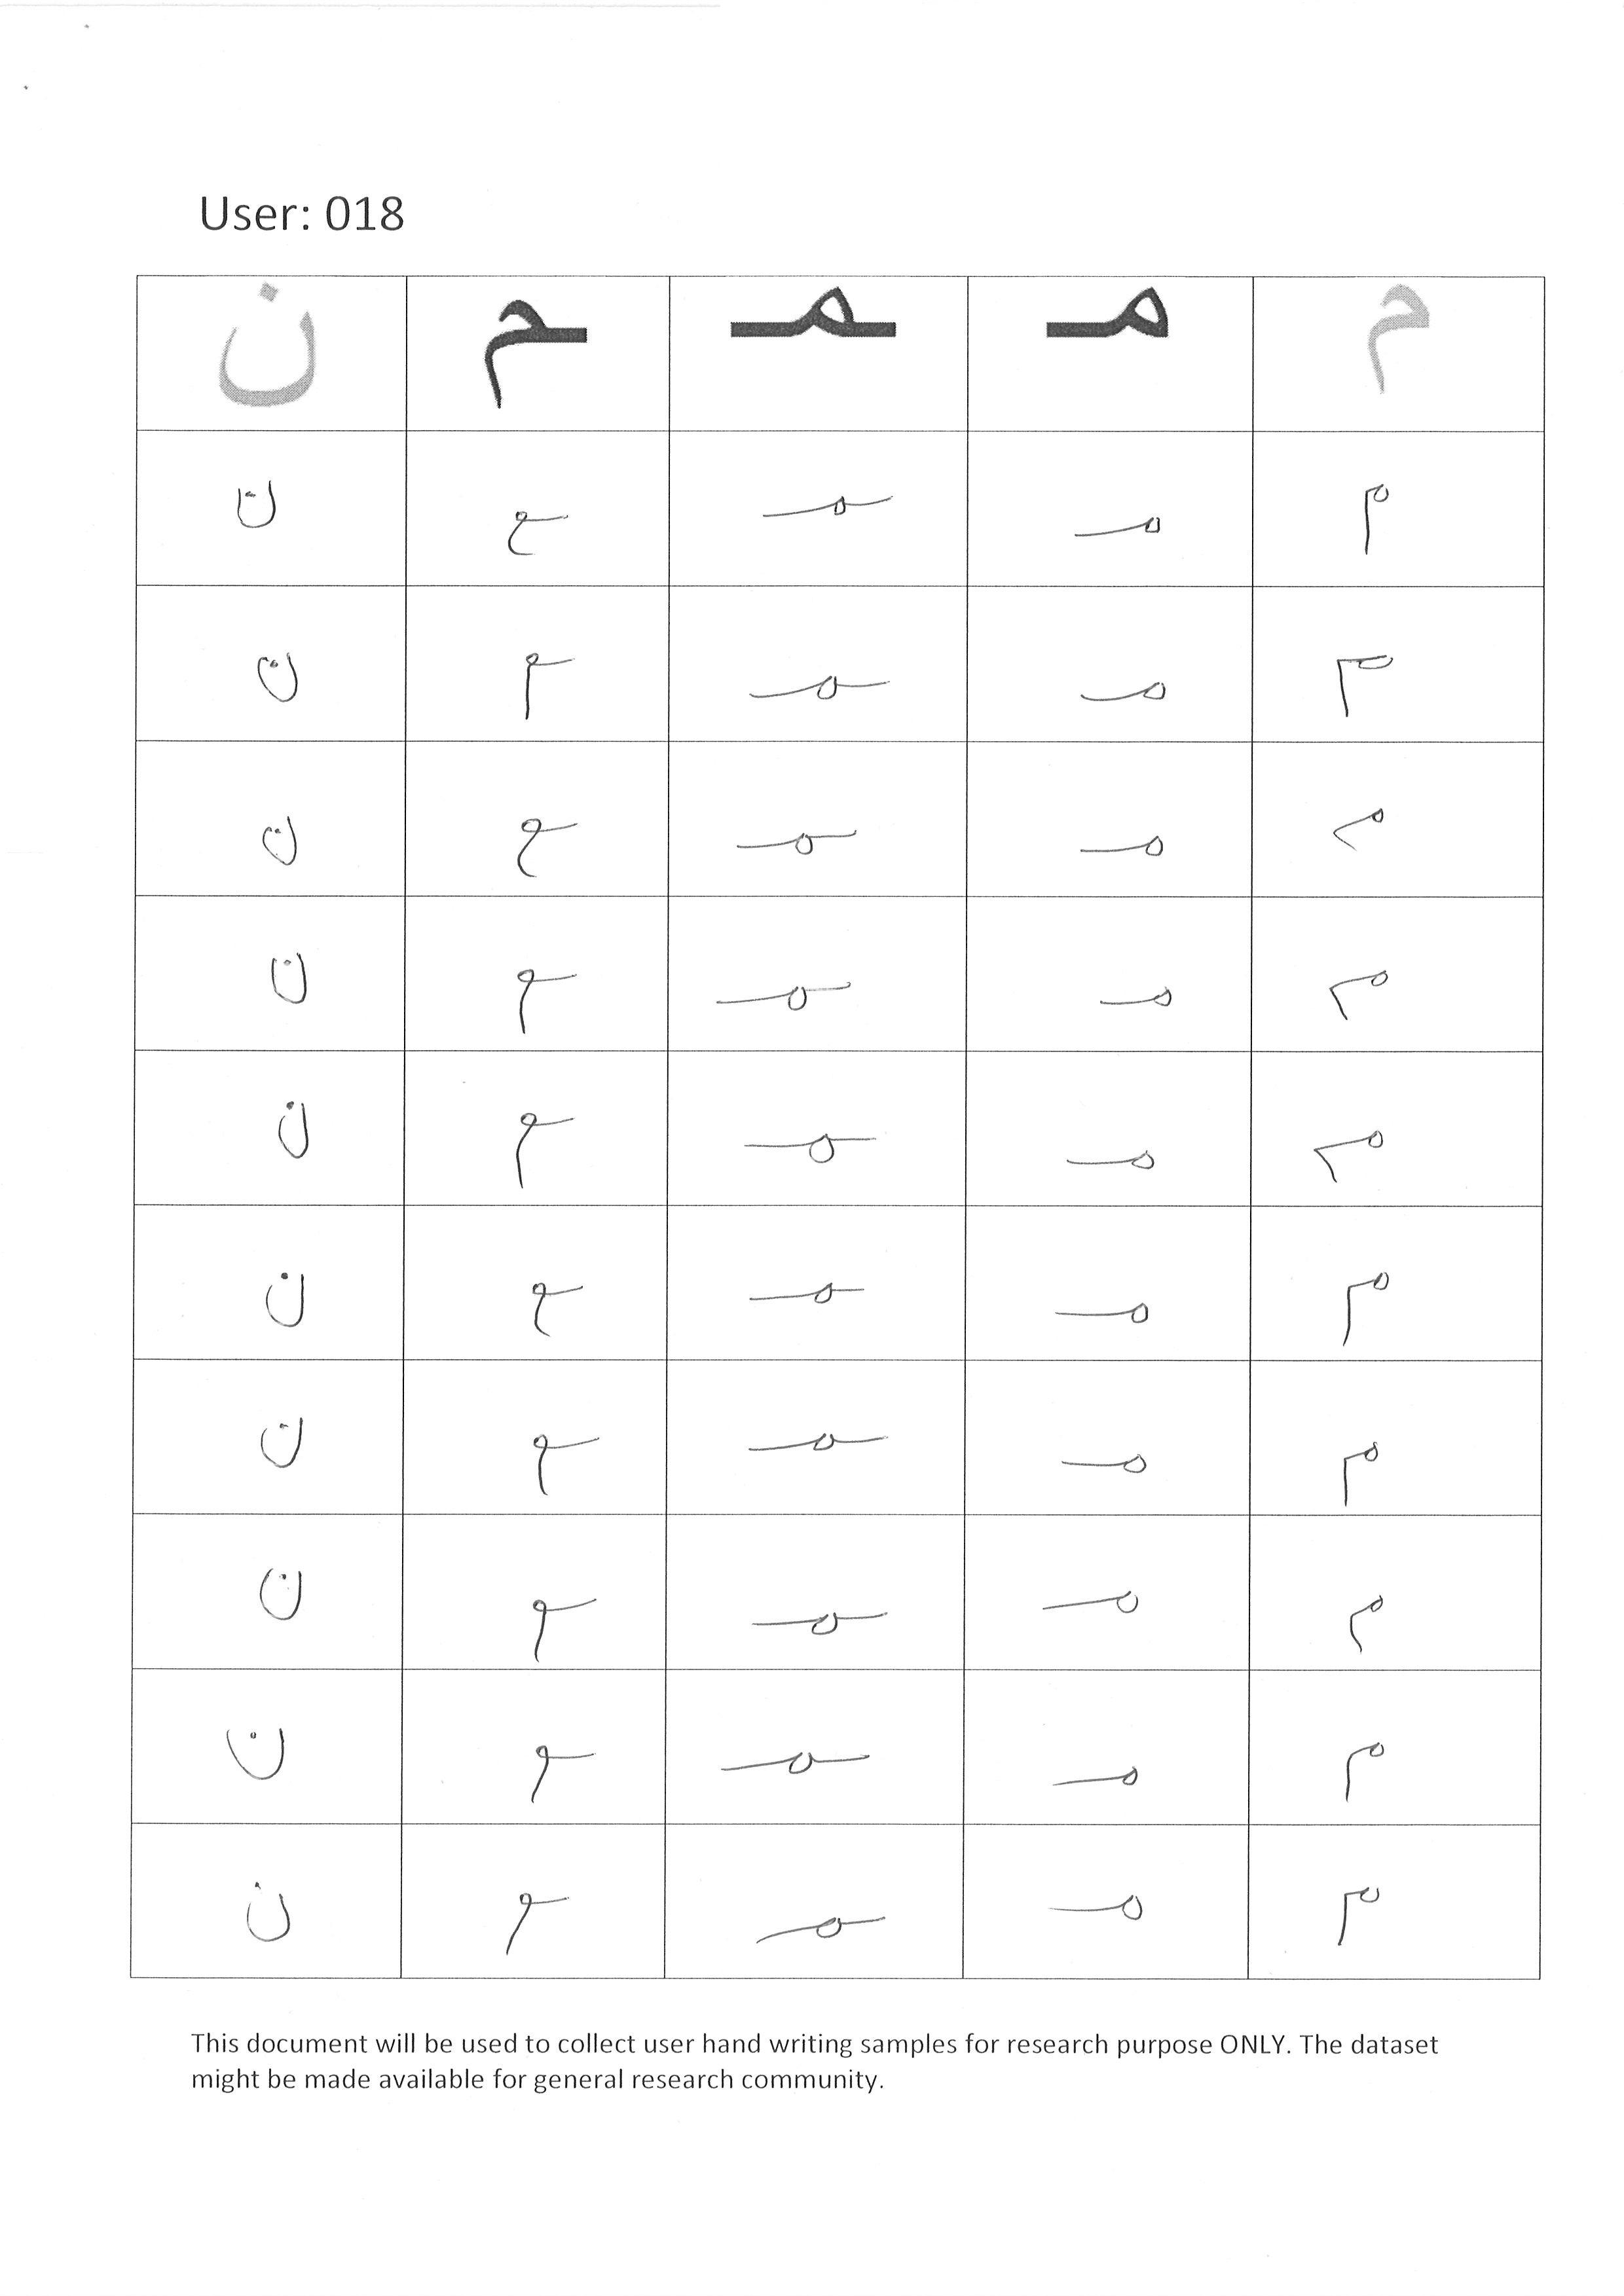 User: 018
م مـ ـمـ ـم ن
م مـ ـمـ ـم ن
م مـ ـمـ ـم ن
م مـ ـمـ ـم ن
م مـ ـمـ ـم ن
م مـ ـمـ ـم ن
م مـ ـمـ ـم ن
م مـ ـمـ ـم ن
م مـ ـمـ ـم ن
م مـ ـمـ ـم ن
م مـ ـمـ ـم ن
This document will be used to collect user hand writing samples for research purpose ONLY. The dataset
might be made available for general research community.